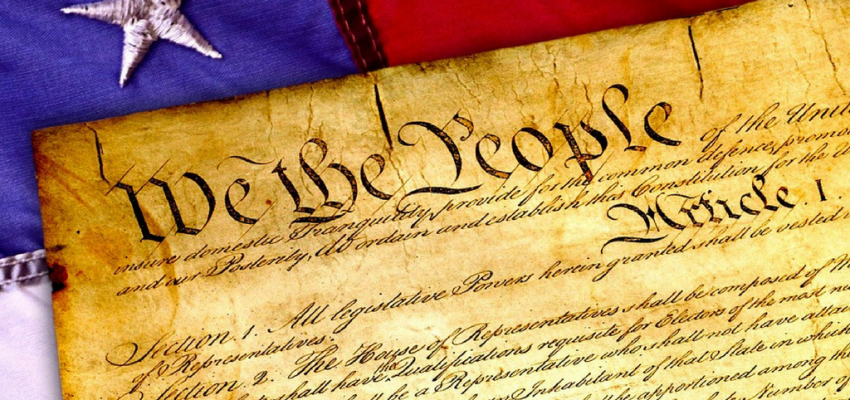 We the People of the Unit
insure domestic Tranquility, provide for the common defence, promo
and our Posterity, do ordain and establish this Constitution for the U
Article. I.
Section. 1. All legislative Powers herein granted shall be vested i
of Representatives.
Section. 2. The House of Representatives shall be composed of M
shall have the Qualifications requisite for Electors of the most nu
shall be a Representative who shall not have attai
Inhabitant of that State in which
shall be apportioned among the
Number of